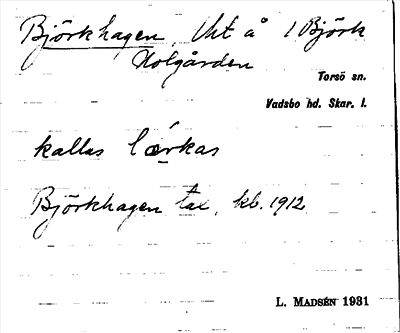 Björkhagen, Uht å 1 Björk
Holgården
Torsö sn.
Vadsbo hd. Skar. l.
kallas lærkas
Björkhagen tax, kb. 1912
L. MADSÉN 1931